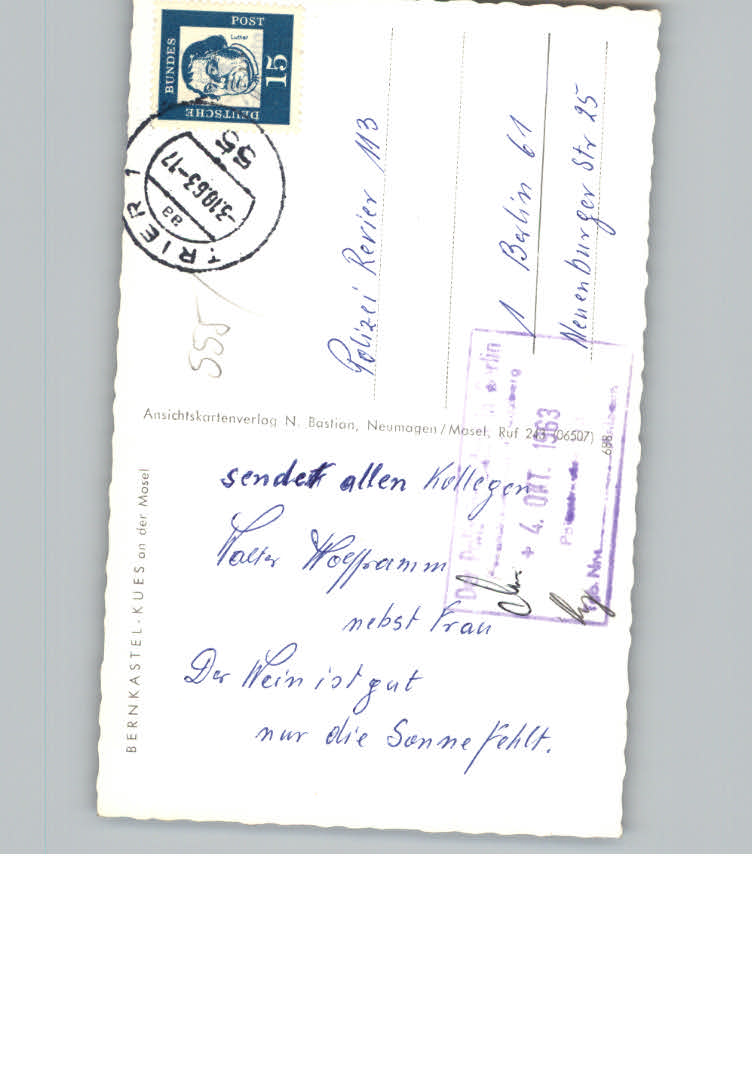 DEUTSCHE
BUNDES
POST
15
Luther
TRIER 1
55
-3.10.63-17
aa
555
Polizei Revier 113
1 Berlin 61
Neuenburger Str 25
Ansichtskartenverlag N. Bastian, Neumagen/Mosel, Ruf 243 (06507)
BERNKASTEL-KUES an der Mosel
sendet allen Kollegen
Walter Wolfframm
nebst Frau
Der Wein ist gut
nur die Sonne fehlt.
Der Berlin
4. OKT. 1963
Tgb. Nr.